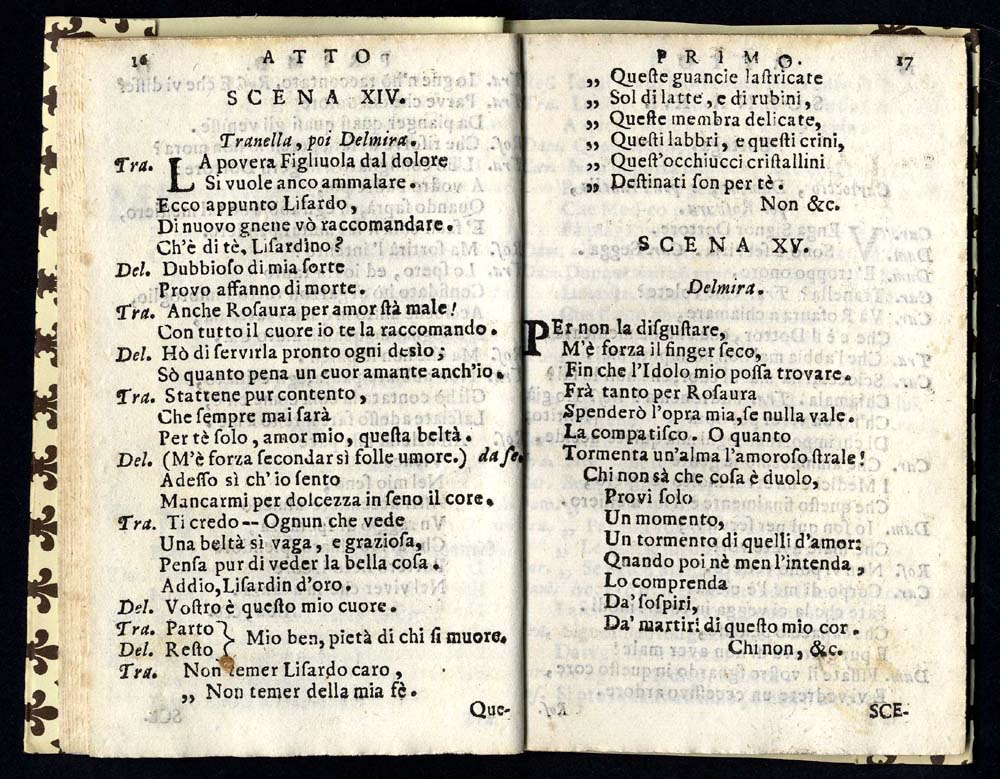 16 ATTO
SCENA XIV.
Tranella, poi Delmira.
Tra. LA povera Figliuola dal dolore
Si vuole anco ammalare.
Ecco appunto Liſardo,
Di nuovo gnene vò raccomandare.
Ch'è di tè, Liſardino?
Del. Dubbioſo di mia ſorte
Provo affanno di morte.
Tra. Anche Roſaura per amor ſtà male!
Con tutto il cuore io te la raccomando.
Del. Hò di ſervirla pronto ogni desìo;
Sò quanto pena un cuor amante anch'io.
Tra. Stattene pur contento,
Che ſempre mai ſarà
Per tè ſolo, amor mio, queſta beltà.
Del. (M'è forza ſecondar sì folle umore.) da ſe.
Adeſſo sì ch' io ſento
Mancarmi per dolcezza in ſeno il core.
Tra. Ti credo -- Ognun che vede
Una beltà sì vaga, e grazioſa,
Penſa pur di veder la bella coſa.
Addio, Liſardin d'oro.
Del. Voſtro è queſto mio cuore.
Tra. Parto } Mio ben, pietà di chi ſi muore.
Del. Reſto
Tra. Non temer Liſardo caro,
„ Non temer della mia fè.
Que-
PRIMO. 17
„ Queſte guancie laſtricate
„ Sol di latte, e di rubini,
„ Queſte membra delicate,
„ Queſti labbri, e queſti crini,
„ Queſt'occhiucci criſtallini
„ Deſtinati ſon per tè.
Non &c.
SCENA XV.
Delmira.
PEr non la diſguſtare,
M'è forza il finger ſeco,
Fin che l'Idolo mio poſſa trovare.
Frà tanto per Roſaura
Spenderò l'opra mia, ſe nulla vale.
La compatiſco. O quanto
Tormenta un'alma l'amoroſo ſtrale!
Chi non sà che coſa è duolo,
Provi ſolo
Un momento,
Un tormento di quelli d'amor:
Quando poi nè men l'intenda,
Lo comprenda
Da' ſoſpiri,
Da' martiri di queſto mio cor.
Chi non, &c.
SCE-